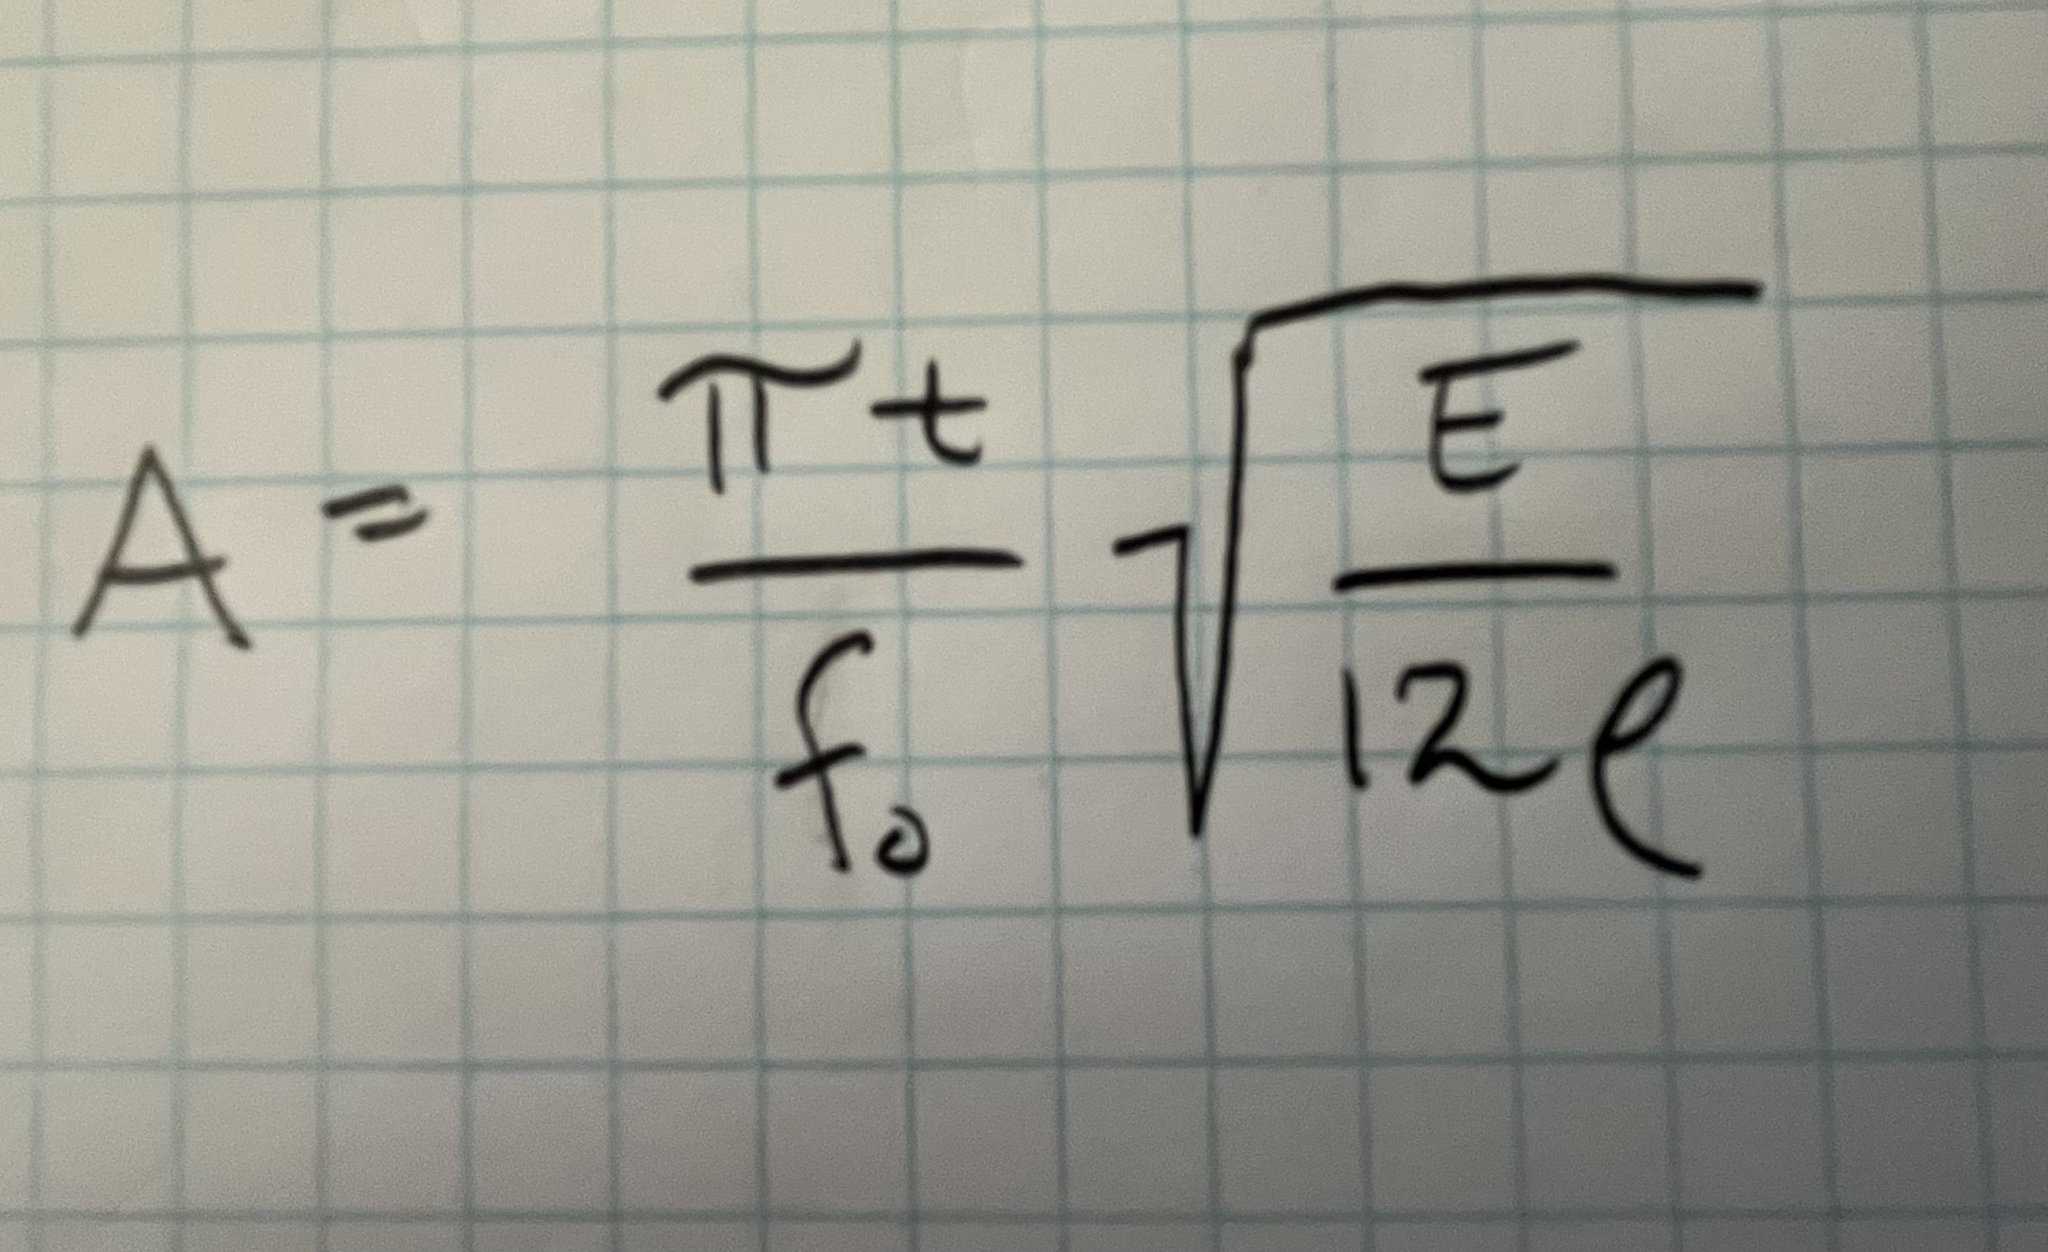 A = πt/f₀ √(E/12ρ)